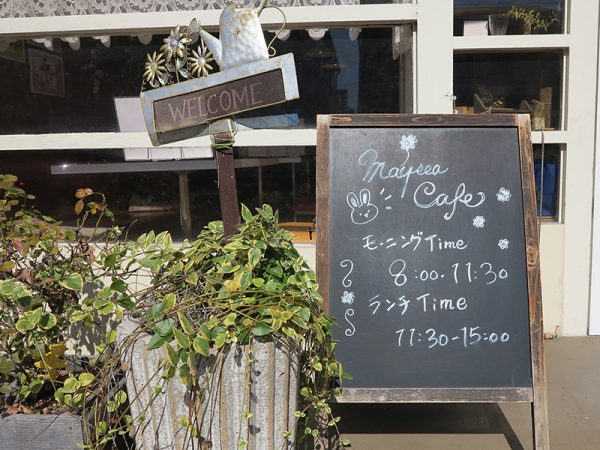 WELCOME
Maysea
Cafe
モーニングTime
8:00-11:30
ランチTime
11:30-15:00